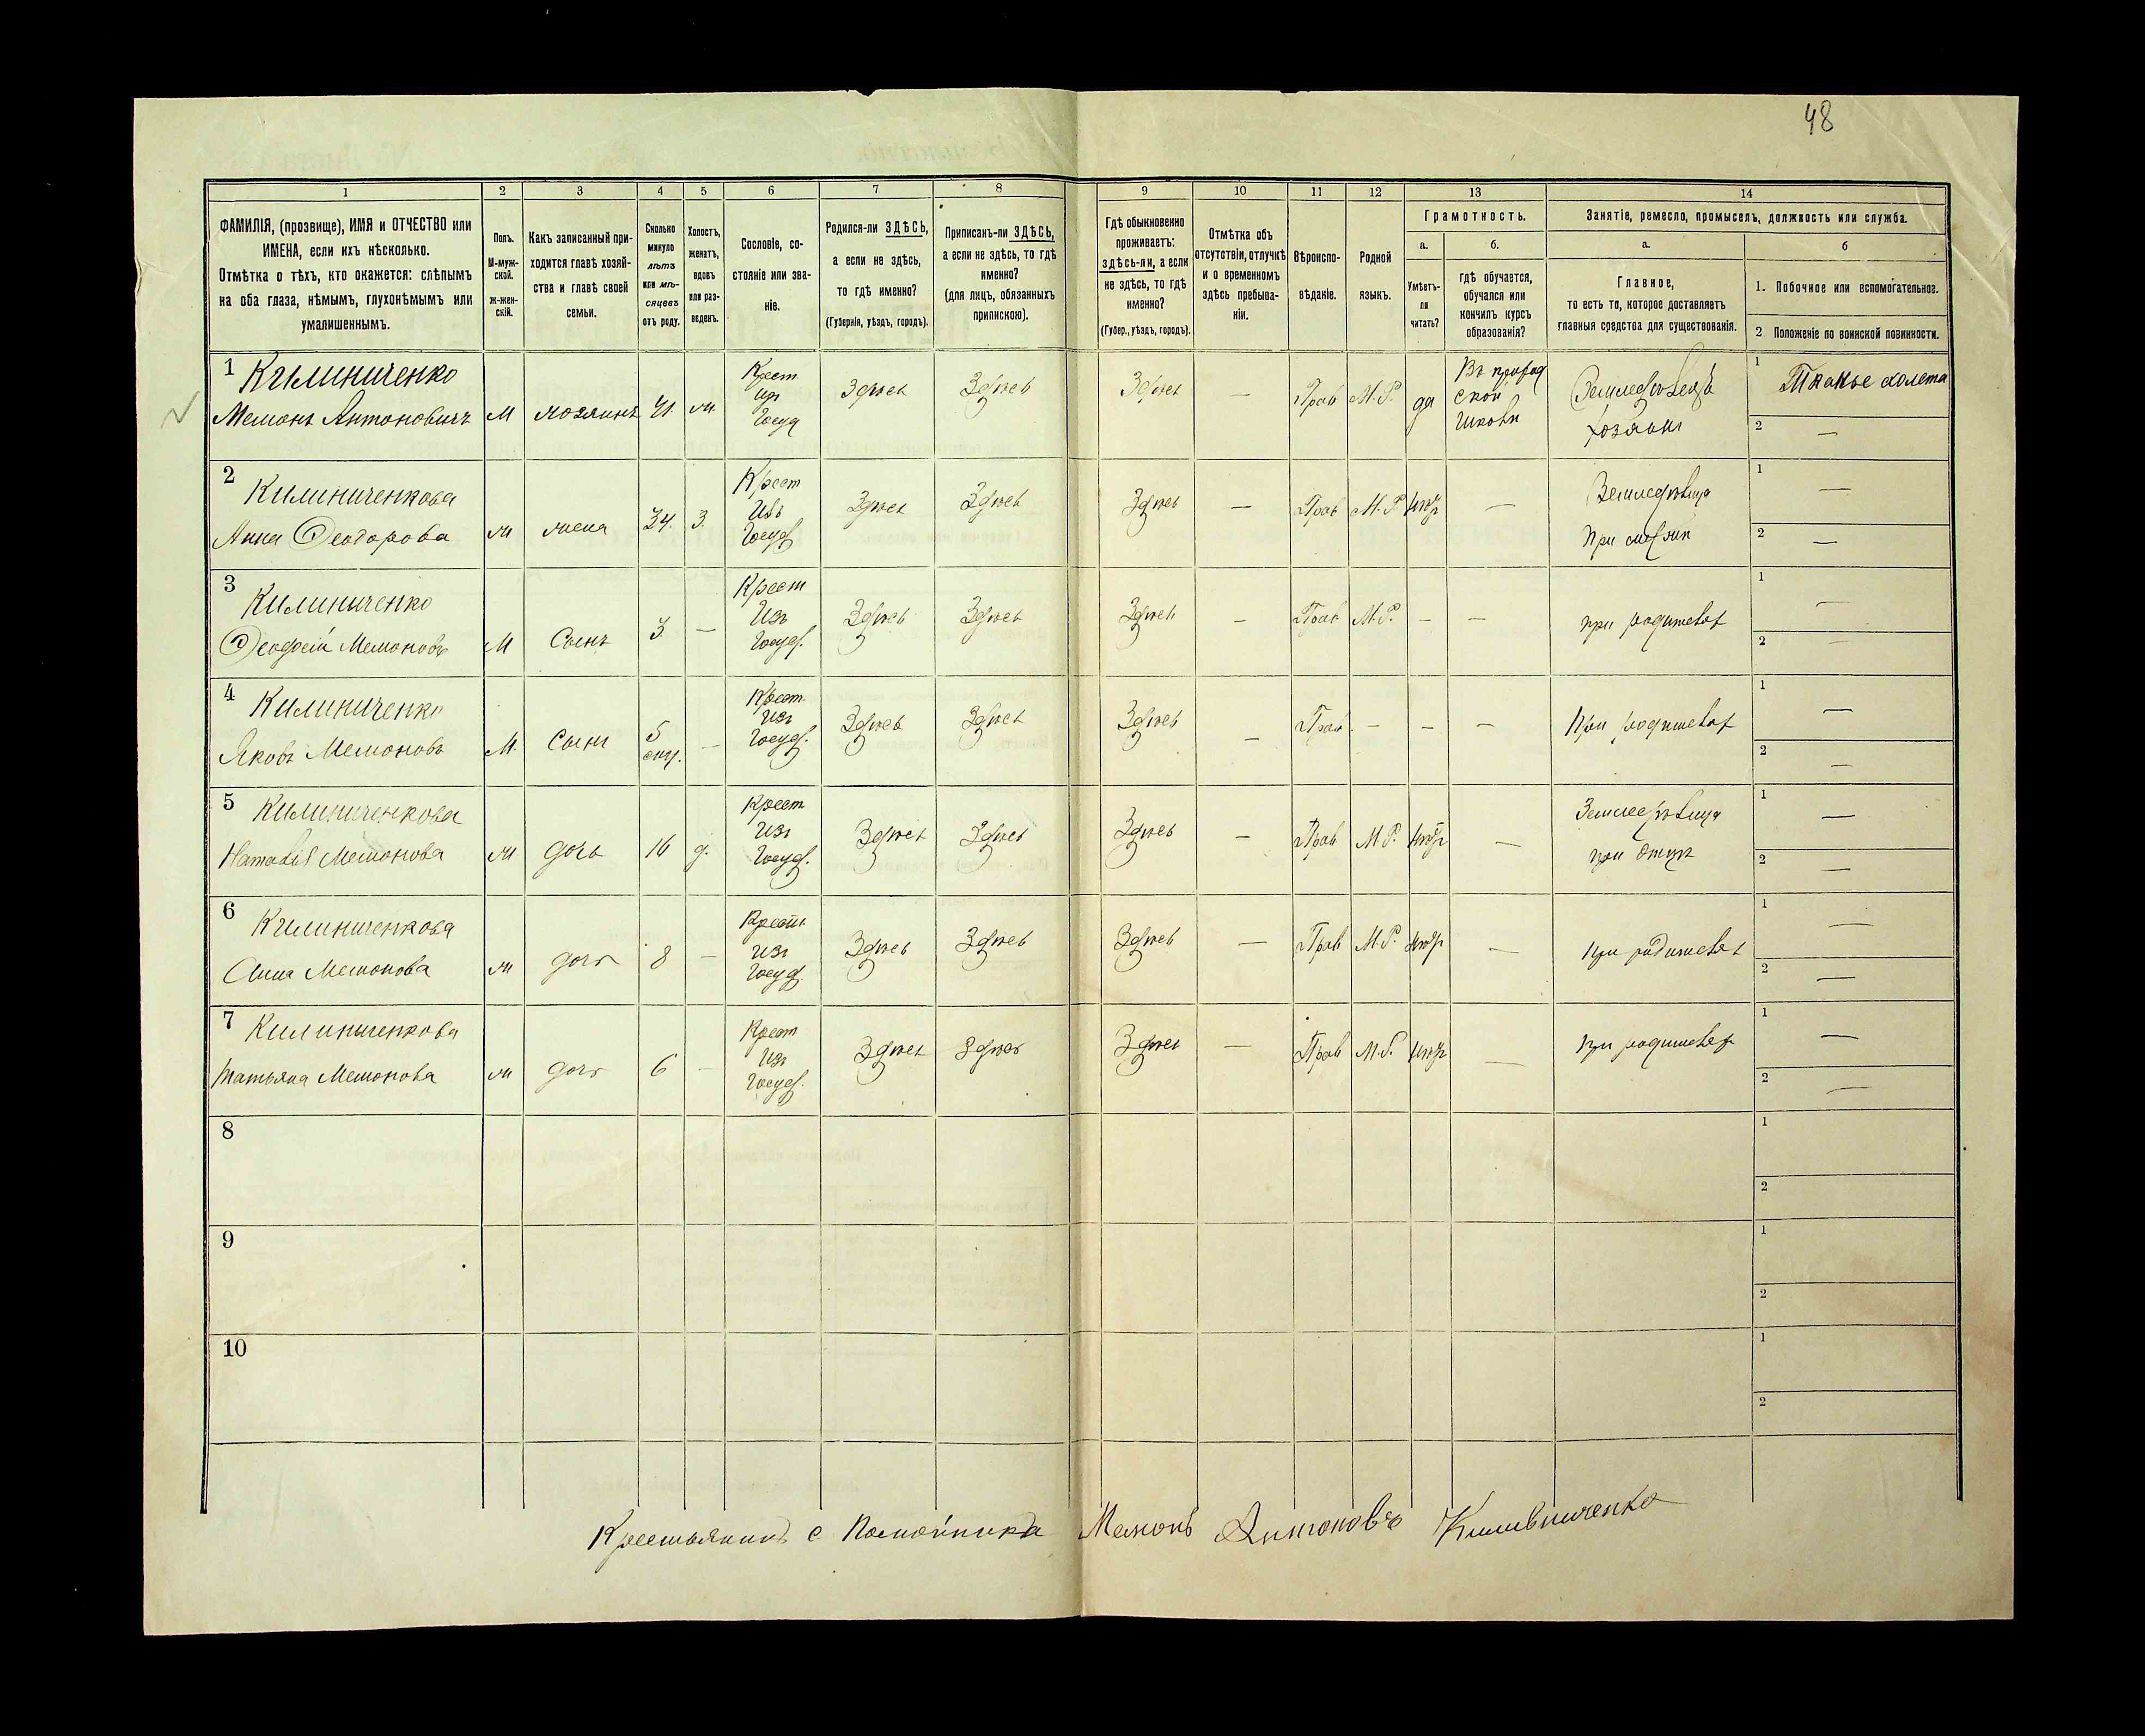 48
1 2 3 4 5 6 7 8 9 10 11 12 13 14
ФАМИЛІЯ, (прозвище), ИМЯ и ОТЧЕСТВО или
ИМЕНА, если ихъ нѣсколько.
Отмѣтка о тѣхъ, кто окажется: слѣпымъ
на оба глаза, нѣмымъ, глухонѣмымъ или
умалишеннымъ.
Полъ.
М-муж-
ской.
ж-жен-
скій.
Какъ записанный при-
ходится главѣ хозяй-
ства и главѣ своей
семьи.
Сколько
минуло
лѣтъ
или мѣ-
сяцевъ
отъ роду.
Холостъ,
женатъ,
вдовъ
или раз-
веденъ.
Сословіе, со-
стояніе или зва-
ніе.
Родился-ли ЗДѢСЬ,
а если не здѣсь,
то гдѣ именно?
(Губернія, уѣздъ, городъ).
Приписанъ-ли ЗДѢСЬ,
а если не здѣсь, то гдѣ
именно?
(для лицъ, обязанныхъ
припискою).
Гдѣ обыкновенно
проживаетъ:
здѣсь-ли, а если
не здѣсь, то гдѣ
именно?
(Губер., уѣздъ, городъ).
Отмѣтка объ
отсутствіи, отлучкѣ
и о временномъ
здѣсь пребыва-
ніи.
Вѣроиспо-
вѣданіе.
Родной
языкъ.
Грамотность.
а.
Умѣетъ-
ли
читать?
б.
гдѣ обучается,
обучался или
кончилъ курсъ
образованія?
Занятіе, ремесло, промыселъ, должность или служба.
а.
Главное,
то есть то, которое доставляетъ
главныя средства для существованія.
б
1. Побочное или вспомогательное.
2 Положеніе по воинской повинности.
1 Килиниченко
Мемонъ Антоновичъ М хозяинъ 41. ж.
Крест
из
Госуд
Здѣсь Здѣсь Здѣсь — Прав М.Р. да
Въ
ской
школѣ
Земледѣлецъ
хозяинъ
1 Тканье холста
2 —
2 Килиниченкова
Анна Ѳеодорова ж жена 34. З.
Крест
Изъ
Госуд
Здѣсь Здѣсь Здѣсь — Прав М.Р —
Земледѣлица
при
1 —
2 —
3 Килиниченко
Мемоновъ М Сынъ 3 —
Крест
Изъ
Госуд.
Здѣсь Здѣсь Здѣсь — Прав М.Р. — —
при родителях
1 —
2 —
4 Килиниченко
Яковъ Мемоновъ М. Сынъ 5 —
Крест.
Изъ
Госуд.
Здѣсь Здѣсь Здѣсь — Прав. — — —
При родителях
1 —
2 —
5 Килиниченкова
Наталія Мемонова ж дочь 16 д.
Крест
Изъ
Госуд.
Здѣсь Здѣсь Здѣсь — Прав М.Р. —
Земледѣлица
при отцѣ
1 —
2 —
6 Килиниченкова
Анна Мемонова ж дочь 8 —
Крест
изъ
Госуд.
Здѣсь Здѣсь Здѣсь — Прав М.Р. —
при родителях
1 —
2 —
7 Килиниченкова
Татьяна Мемонова ж дочь 6 —
Крест
Изъ
Госуд.
Здѣсь Здѣсь Здѣсь — Прав М.Р. —
при родителях
1 —
2 —
8
1
2
9
1
2
10
1
2
Крестьянинъ с Мемонъ Антоновъ